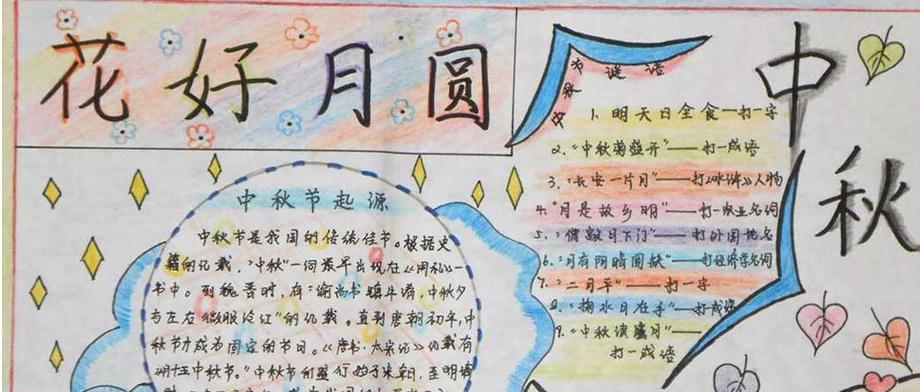 花好月圆
中秋
中秋节谜语
1、明天日全食—打一字
2、“中秋菊盛开”——打一成语
3、“长安一片月”——打《水浒》人物
4、“月是故乡明”——打一农业名词
5、“僧敲月下门”——打外国地名
6、“月有阴晴圆缺”——打经济学名词
7、“二月平”——打一字
8、“掬水月在手”——打成语
9、“中秋
打一成语
中秋节起源
中秋节是我国的传统佳节。根据史
籍的记载，“中秋”一词最早出现在《周礼》一
书中。到魏晋时，有“谕尚书镇牛渚，中秋夕
与左右微服泛江”的记载。直到唐朝初年，中
秋节才成为固定的节日。《唐书·太宗记》记载有
中秋节。”中秋节的盛行始于宋朝，至明清